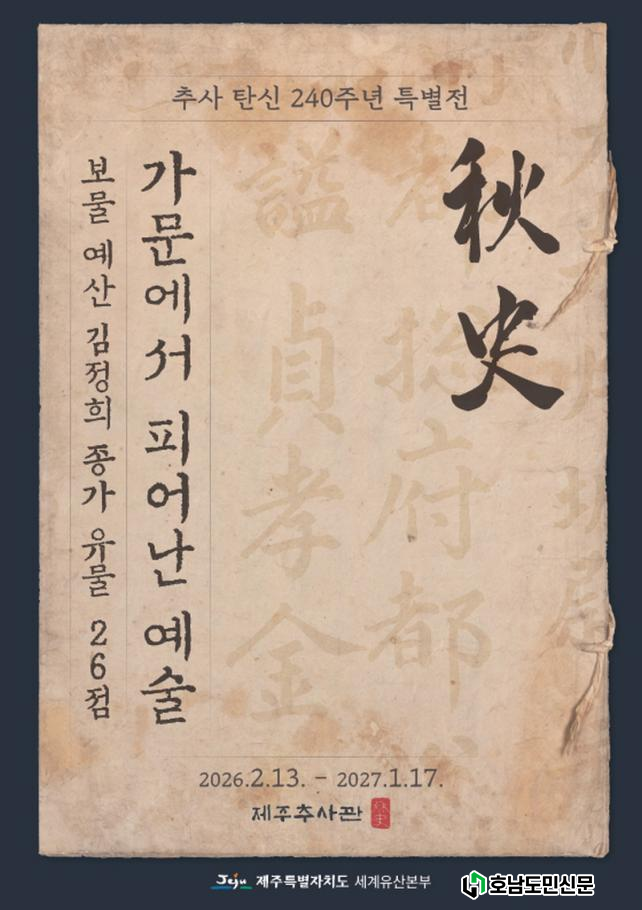 추사 탄신 240주년 특별전
秋史
가문에서 피어난 예술
보물 예산 김정희 종가 유물 26점
都 摠府都
謚 貞孝金
2026.2.13. - 2027.1.17.
제주추사관
Jeju 제주특별자치도 세계유산본부
호남도민신문